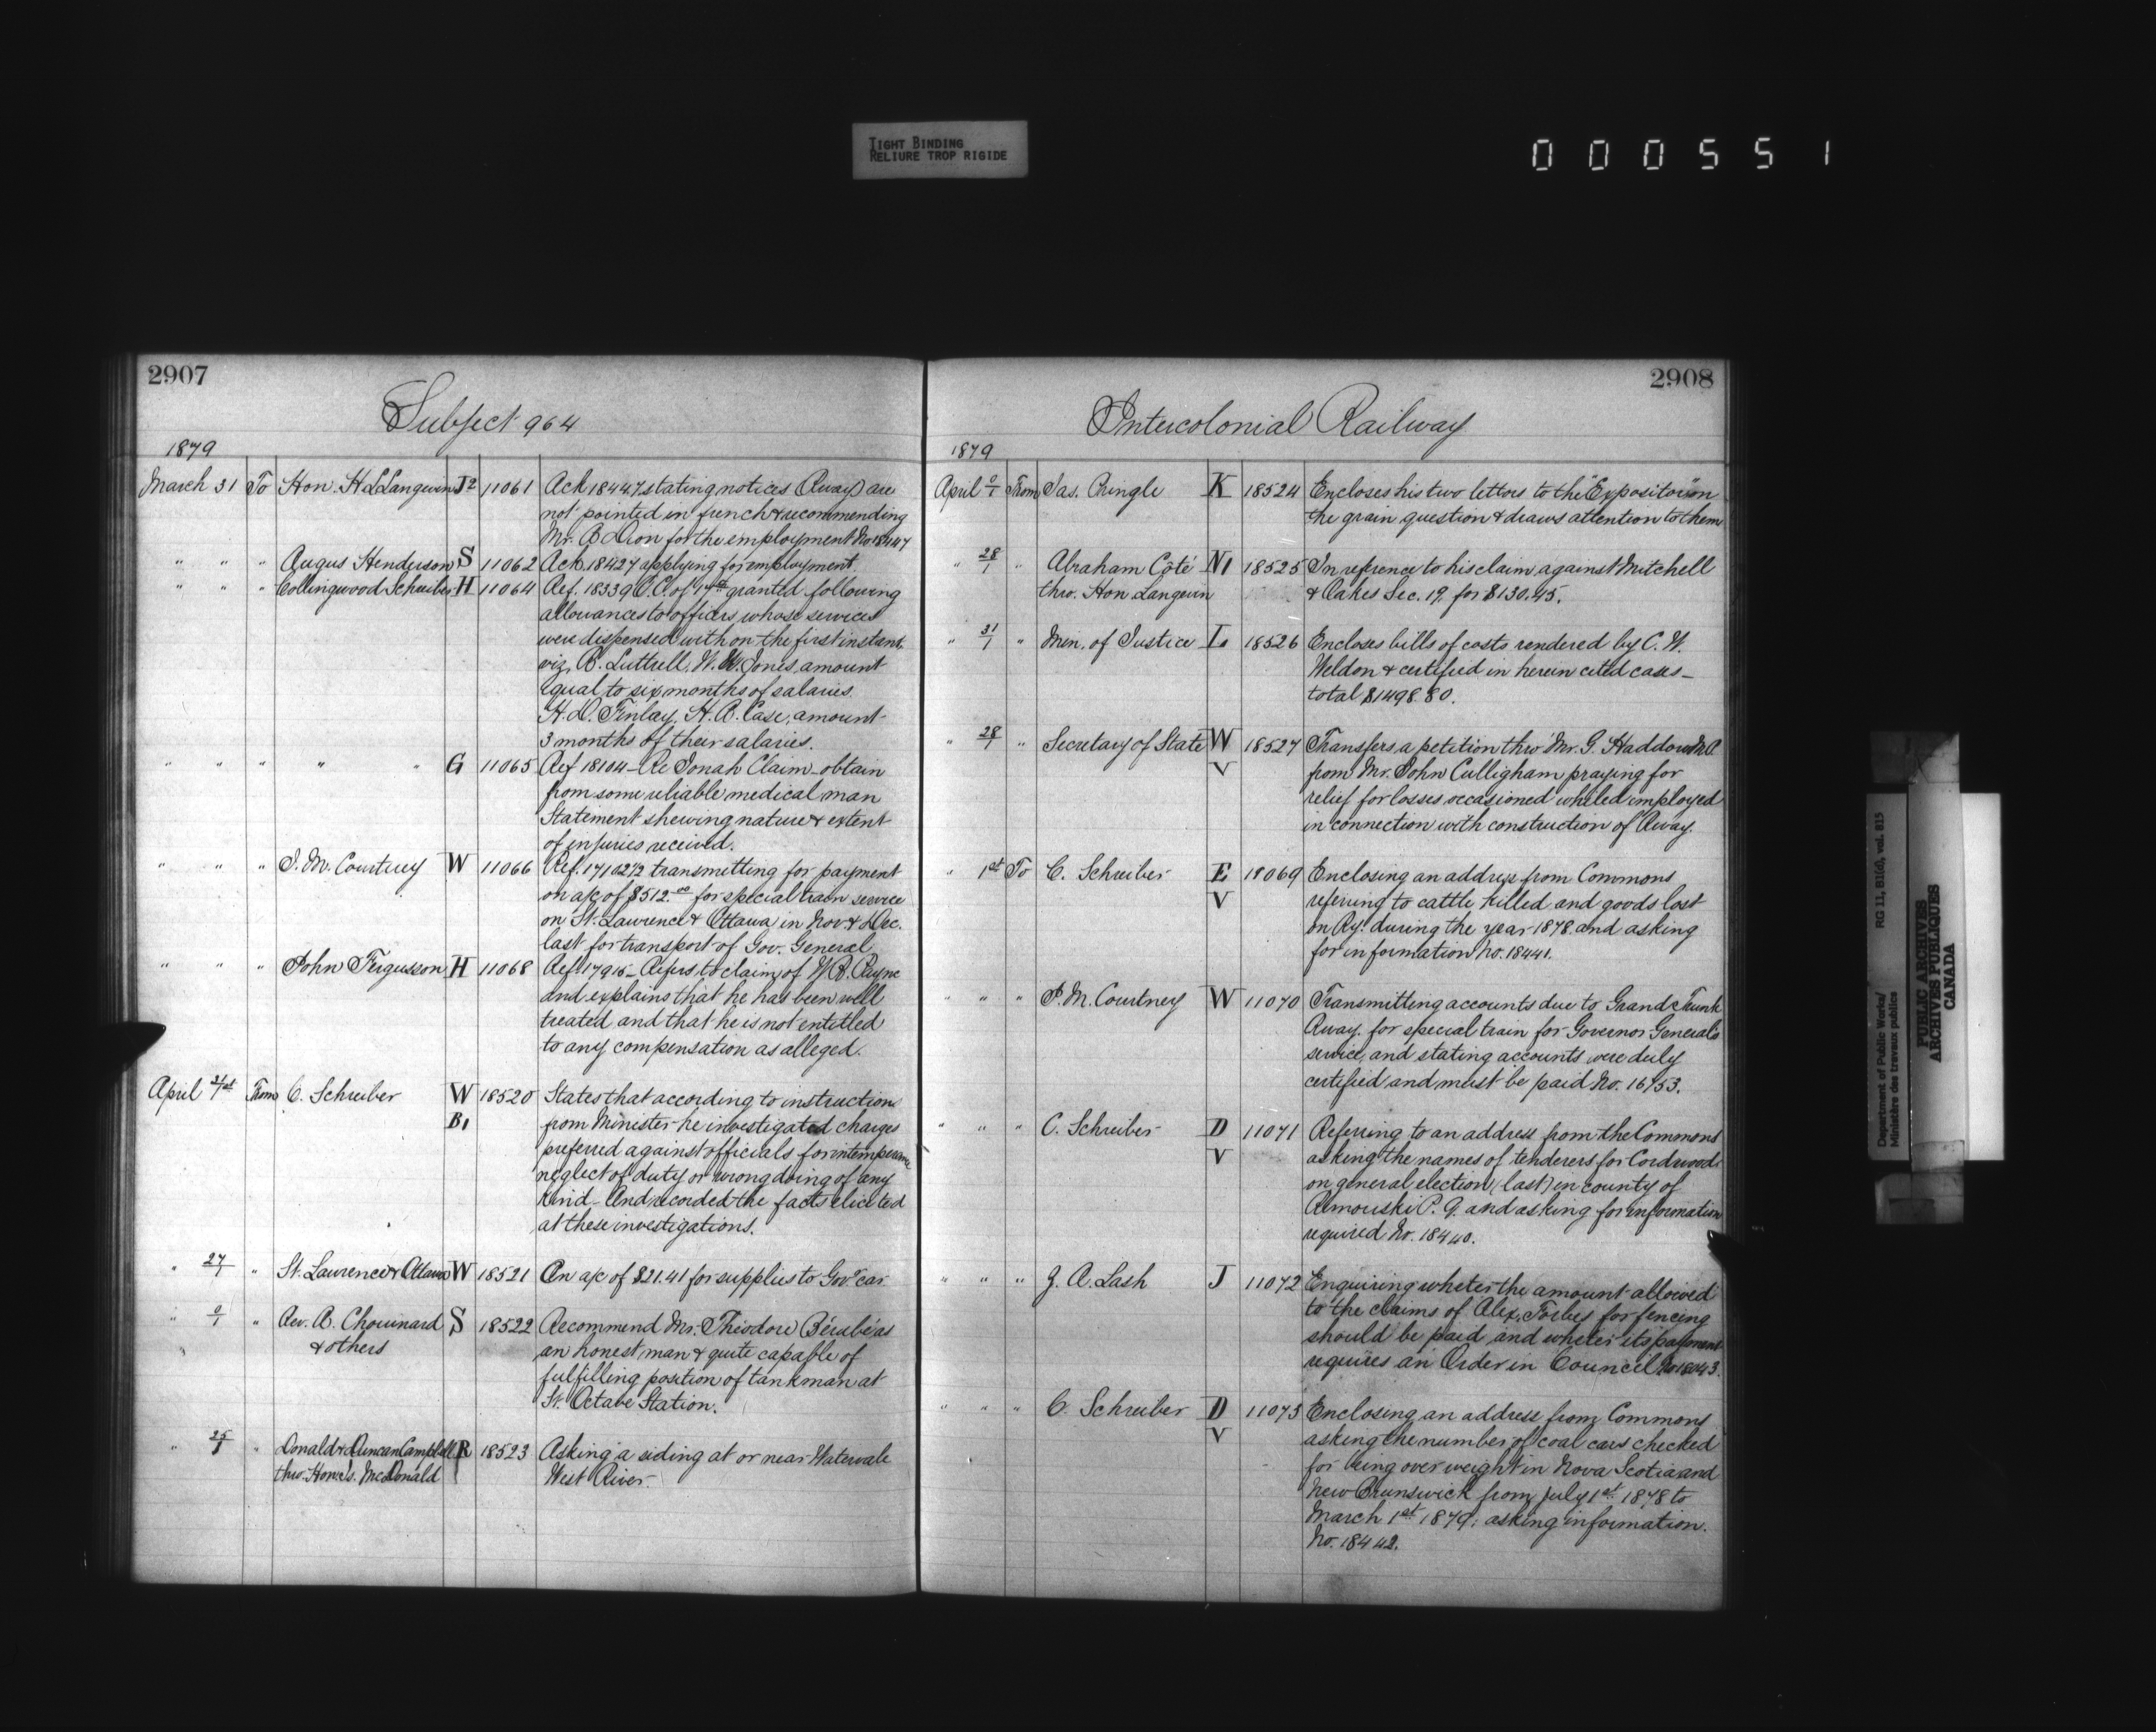 TIGHT BINDING
RELIURE TROP RIGIDE
000551
2907
Subject 964
1879
March 31 To Hon. H L Langevin J2 11061 Ack 18447 stating notices (Rway) are
not printed in french & recommending
Mr. B Dion for the employment No 18447
" " " Angus Henderson S 11062 Ack. 18427 applying for employment.
" " " Collingwood Schreiber H 11064 Ref. 18339 O.C. of 17th granted following
allowances to officers whose services
were dispensed with on the first instant.
viz, R. Luttrell, W. W. Jones, amount
equal to six months of salaries.
H. D. Finlay, H. A. Case, amount
3 months of their salaries.
" " " " " G 11065 Ref 18104 – Re Jonah Claim – obtain
from some reliable medical man
Statement shewing nature & extent
of injuries received.
" " " J. M. Courtney W 11066 Ref. 17102½ transmitting for payment
on a/c of $512.00 for special train service
on St. Lawrence & Ottawa in Nov. & Dec.
last for transport of Gov. General
" " " John Fergusson H 11068 Ref. 17915 – Refers to claim of W. R. Payne
and explains that he has been well
treated and that he is not entitled
to any compensation as alleged.
April 31/1st From C. Schreiber W 18520 States that according to instructions
B1 from Minister he investigated charges
preferred against officials for intemperance
neglect of duty or wrong doing of any
kind – And recorded the facts elicited
at these investigations.
" 27/1 " St. Lawrence & Ottawa W 18521 On a/c of $21.41 for supplies to Govr car
" 0/1 " Rev. A. Chouinard S 18522 Recommend Mr. Théodore Bérubé as
& others an honest man & quite capable of
fulfilling position of tankman at
St. Octave Station.
" 25/1 " Donald & Duncan Campbell R 18523 Asking a siding at or near Watervale
thro. Hon. Js. McDonald West River.
2908
Intercolonial Railway
1879
April 0/1 From Jas. Pringle K 18524 Encloses his two letters to the "Expositor" on
the grain question & draws attention to them
" 28/1 " Abraham Côté N1 18525 In reference to his claim against Mitchell
thro. Hon Langevin & Oakes Sec. 19. for $130.45.
" 31/1 " Min. of Justice L 18526 Encloses bills of costs rendered by C. W.
Weldon & certified in herein cited cases –
total $1498.80.
" 28/1 " Secretary of State W 18527 Transfers a petition thro' Mr. G. Haddow M.P.
V from Mr. John Culligham praying for
relief for losses occasioned whiled employed
in connection with construction of Rway.
" 1st To C. Schreiber E 18069 Enclosing an address from Commons
V referring to cattle killed and goods lost
on Ry. during the year 1878. and asking
for information No. 18441.
" " " J. M. Courtney W 11070 Transmitting accounts due to Grand Trunk
Rway. for special train for Governor General's
service, and stating accounts were duly
certified and must be paid No. 16753.
" " " C. Schreiber D 11071 Referring to an address from the Commons
V asking the names of tenderers for Cordwood
on general election (last) in county of
Rimouski P. Q. and asking for information
required No. 18440.
" " " Z. A. Lash J 11072 Enquiring wheter the amount allowed
to the claims of Alex. Forbes for fencing
should be paid and wheter its payment
requires an Order in Council No 18043.
" " " C. Schreiber D 11073 Enclosing an address from Commons
V asking the number of coal cars checked
for being over weight in Nova Scotia and
New Brunswick from July 1st 1878 to
March 1st 1879; asking information.
No. 18442.
Department of Public Works/
Ministère des travaux publics
RG 11, B1(d), vol. 815
PUBLIC ARCHIVES
ARCHIVES PUBLIQUES
CANADA